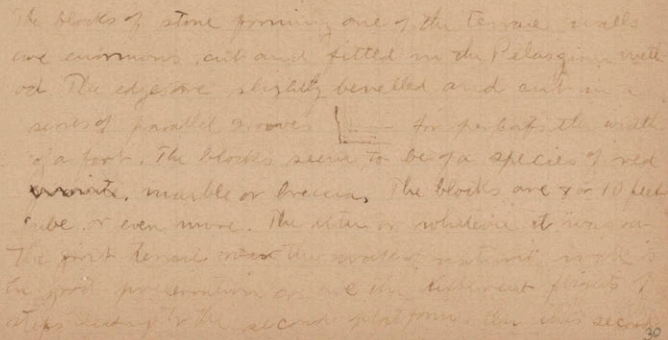 The blocks of stone forming one of the terrace walls
are enormous, cut and fitted in the Pelasgian meth-
od The edges are slightly bevelled and cut in a
series of parallel grooves for perhaps the width
of a foot. The blocks seem to be of a species of red
marble or breccia, The blocks are 8 or 10 feet
cube, or even more. The or whatever it was on
The first terrace the water is
in good preservation as are the different flights of
steps leading to the second platform. On this second
30